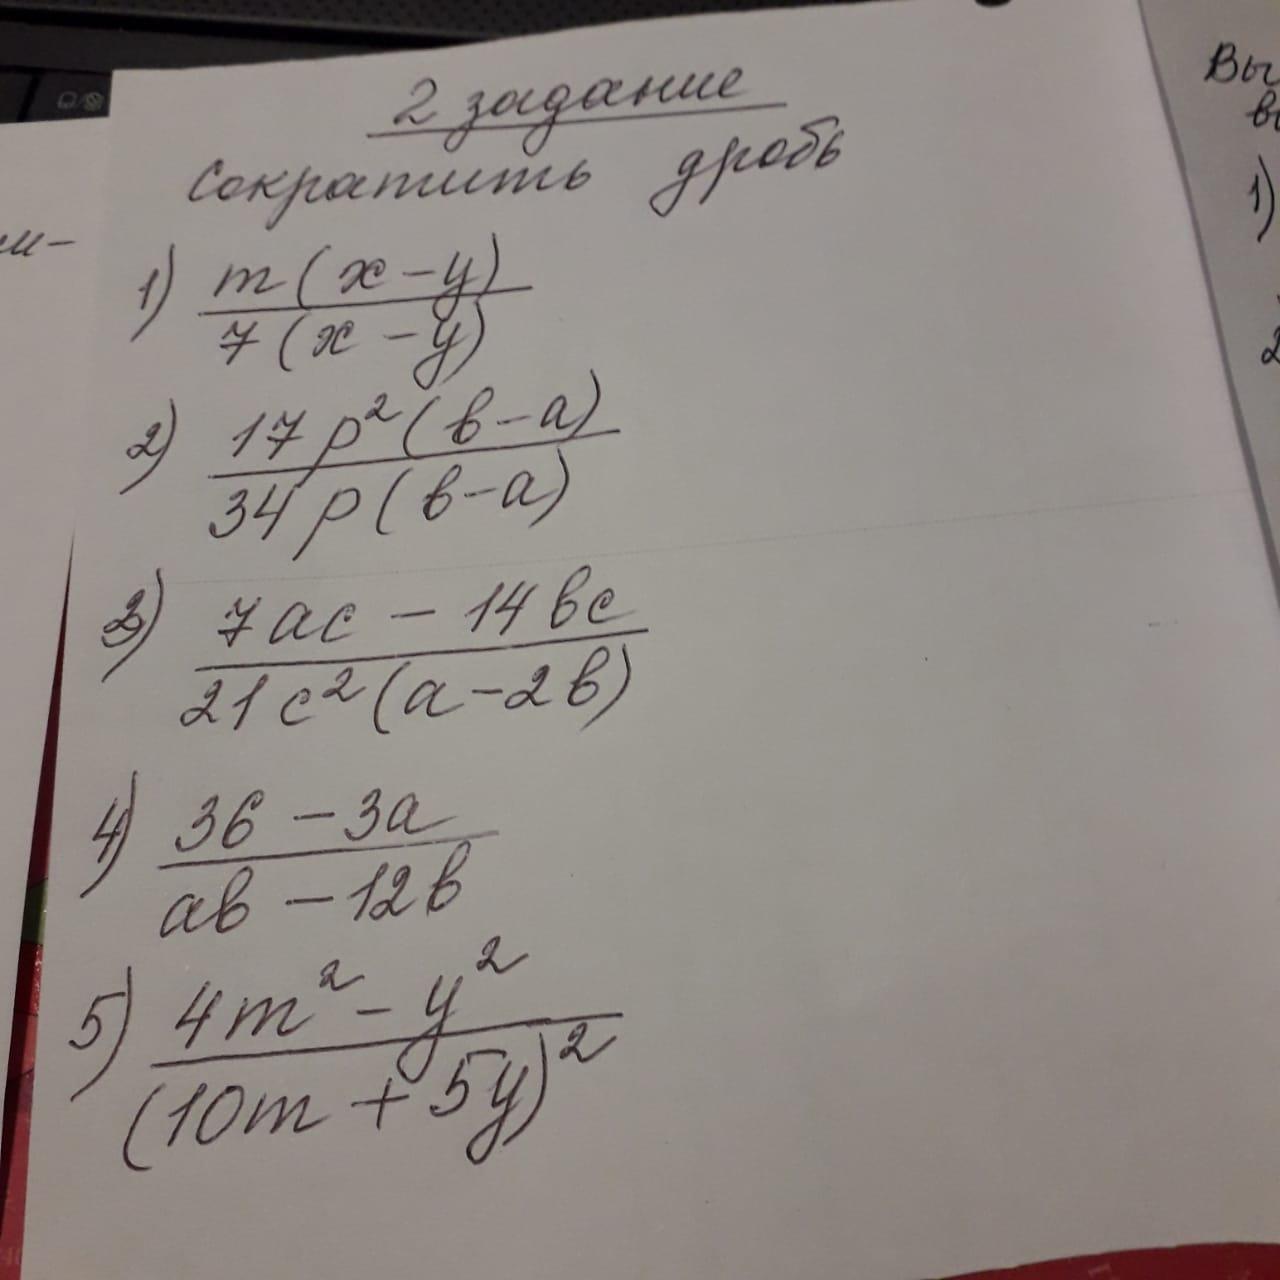 2 задание
Сократить дробь
1) m(x-y)
7(x-y)
2) 17p²(b-a)
34p(b-a)
3) 7ac - 14bc
21c²(a-2b)
4) 36 - 3a
ab - 12b
5) 4m² - y²
(10m + 5y)²
Вы
1)